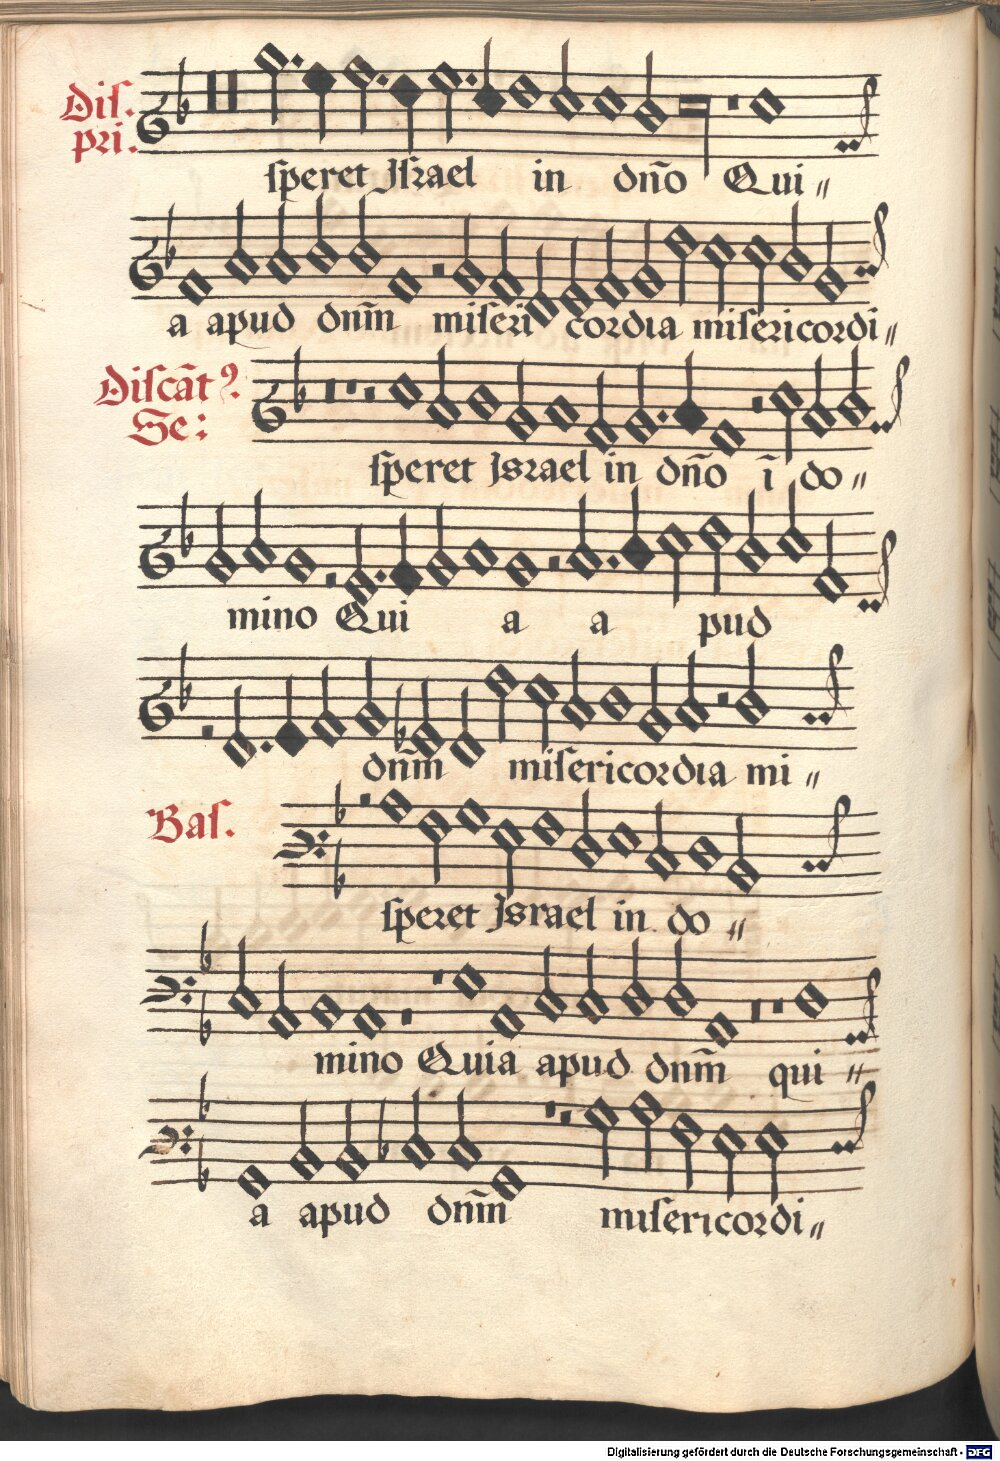 Disc.
pri.
speret Israel in dño Qui〃
a apud dnm̄ misericordia misericordi〃
Discāt9
Se:
speret Israel in dño ī do〃
mino Qui a a pud
dnm̄ misericordia mi〃
Bas.
speret Israel in do〃
mino Quia apud dnm̄ qui〃
a apud dnm̄ misericordi〃
Digitalisierung gefördert durch die Deutsche Forschungsgemeinschaft - DFG